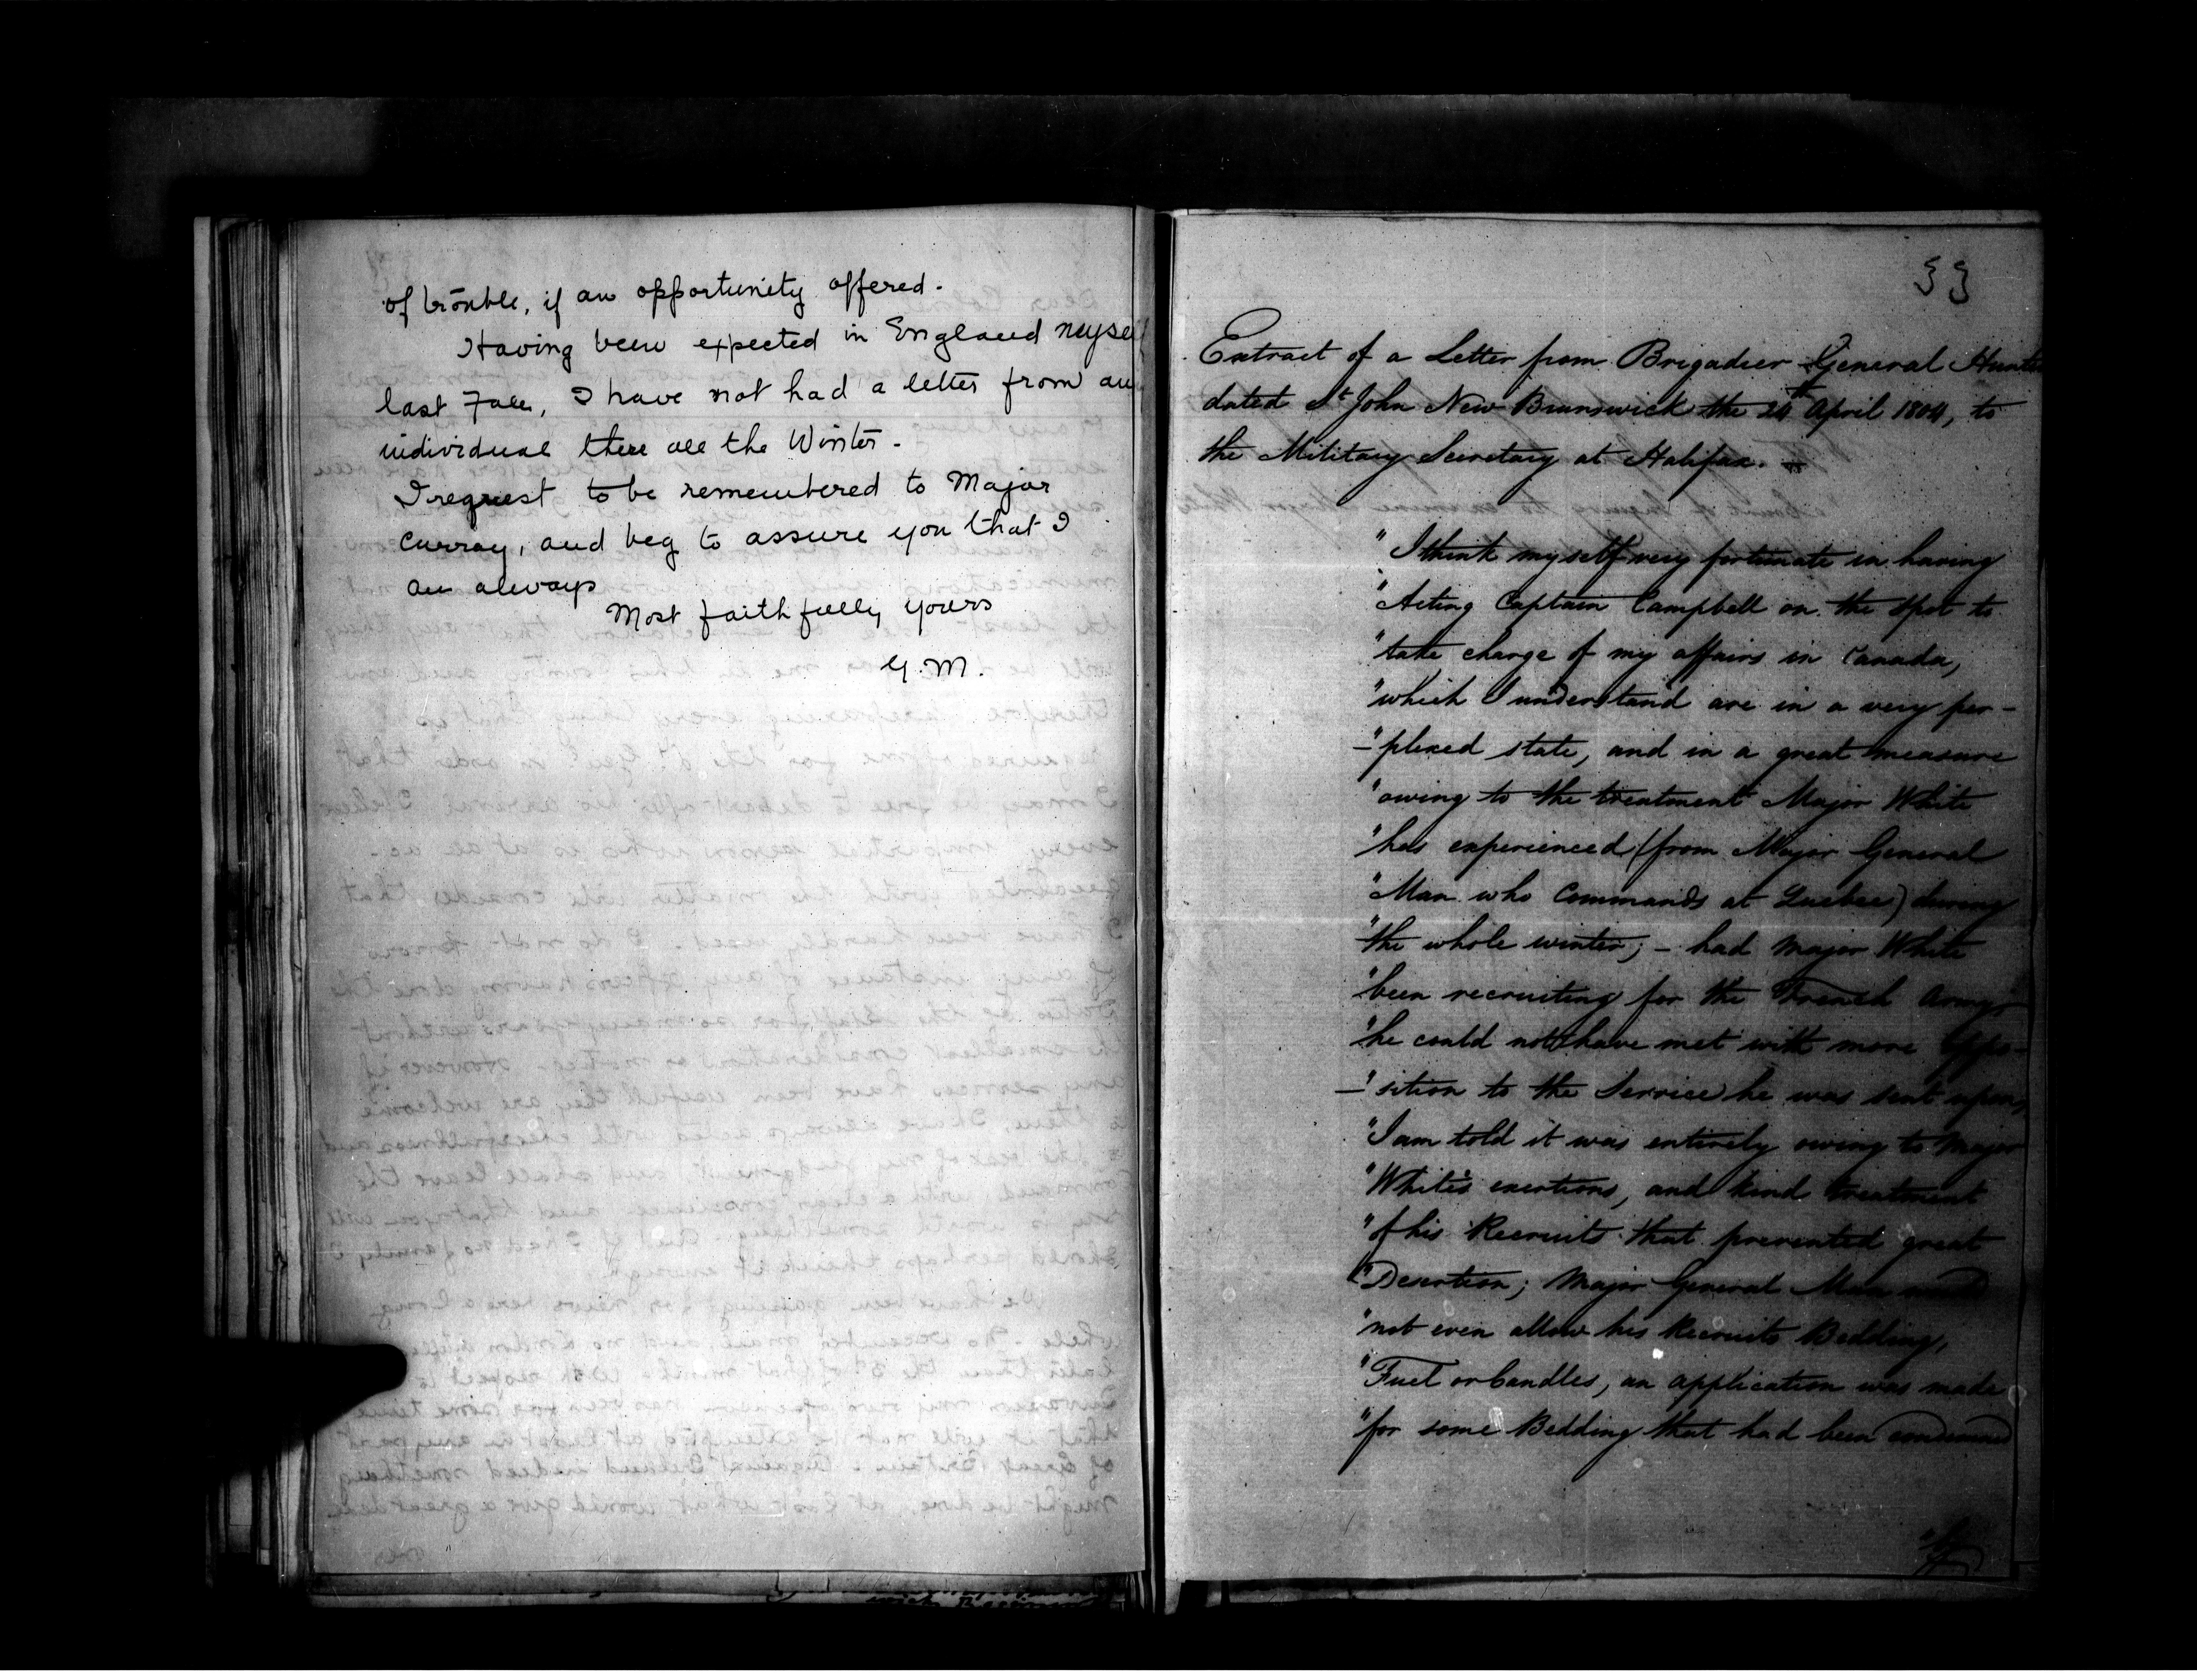 of trouble, if an opportunity offered.
Having been expected in England myself
last Fall, I have not had a letter from any
individual there all the Winter.
I request to be remembered to Major
Curray, and beg to assure you that I
am always
Most faithfully yours
G. M.
53
Extract of a Letter from Brigadier General Hunter
dated St John New Brunswick the 24th April 1804, to
the Military Secretary at Halifax.
"I think myself very fortunate in having
"Acting Captain Campbell on the spot to
"take charge of my affairs in Canada,
"which I understand are in a very per-
-"plexed state, and in a great measure
"owing to the treatment Major White
"has experienced (from Major General
"Man who Commands at Quebec) during
"the whole winter; - had Major White
"been recruiting for the French Army,
"he could not have met with more Oppo-
-"sition to the Service he was sent upon,
"I am told it was entirely owing to Major
"White's exertions, and kind treatment
"of his Recruits that prevented great
"Desertion; Major General Man would
"not even allow his Recruits Bedding,
"Fuel or Candles, an application was made
"for some Bedding that had been condemned
"by